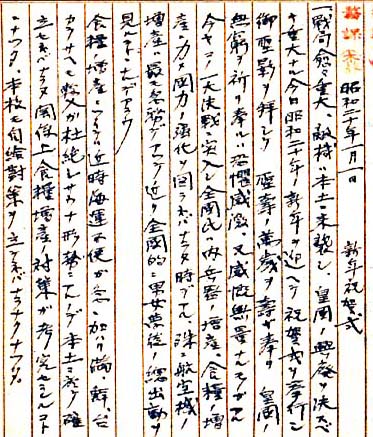 昭和二十年一月一日 新年祝賀式
一、戦局愈々重大、敵機ハ本土ニ来襲シ、皇国ノ興廃ヲ決スベ
キ重大ナル今日昭和二十年ノ新年ヲ迎ヘテ祝賀式ヲ挙行シ
御聖影ヲ拝シテ 聖寿ノ萬歳ヲ寿ギ奉リ 皇国ノ
無窮ヲ祈リ奉ル、恐懼感激又感慨無量
今ヤ一大決戦ニ突入シ全国民ハ兵器ノ増産、食糧ノ増
産ニカメ国力ノ強化ヲ図ラネバナラヌ時デアル 殊ニ航空機ノ
増産ハ最モ急務デアツテ近ク全国的ニ男女農徒ノ總出動ヲ
見ルコトデアラウ
食糧増産ニツイテハ近時海運不便ガ愈々加ハリ満、鮮、台
カラサヘモ輸入ガ杜絶シサウナ形勢
立セネバナラヌ関係上、食糧増産ノ対策ガ考究セラルルコト
ニナツタ、本校モ自給対策ヲ立テネバナラナクナツタ。